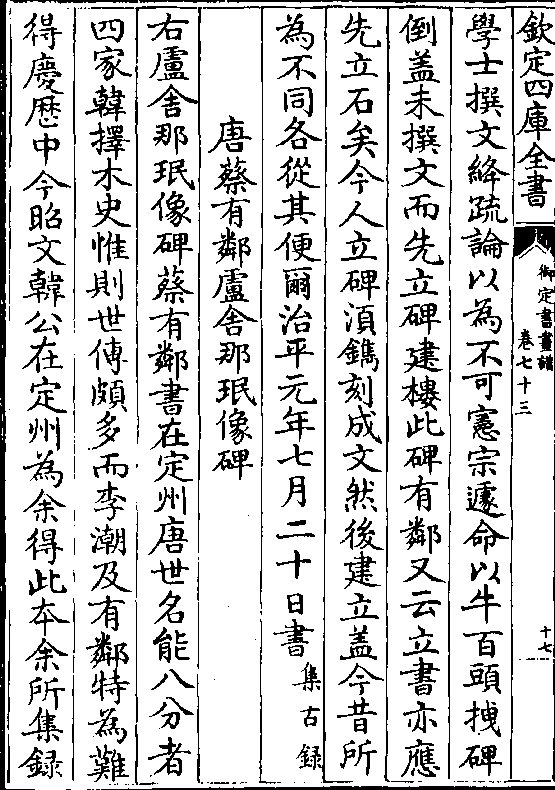 欽定四庫全書
御定書畫譜
卷七十三
十七
學士撰文絳疏論以為不可憲宗遽命以牛百頭拽碑
倒蓋未撰文而先立碑建樓此碑有鄰又云立書亦應
先立石矣今人立碑湏鐫刻成文然後建立蓋今昔所
為不同各從其便爾治平元年七月二十日書集古錄
唐蔡有鄰盧舍那珉像碑
右盧舍那珉像碑蔡有鄰書在定州唐世名能八分者
四家韓擇木史惟則世傳頗多而李潮及有鄰特為難
得慶歷中今昭文韓公在定州為余得此本余所集錄